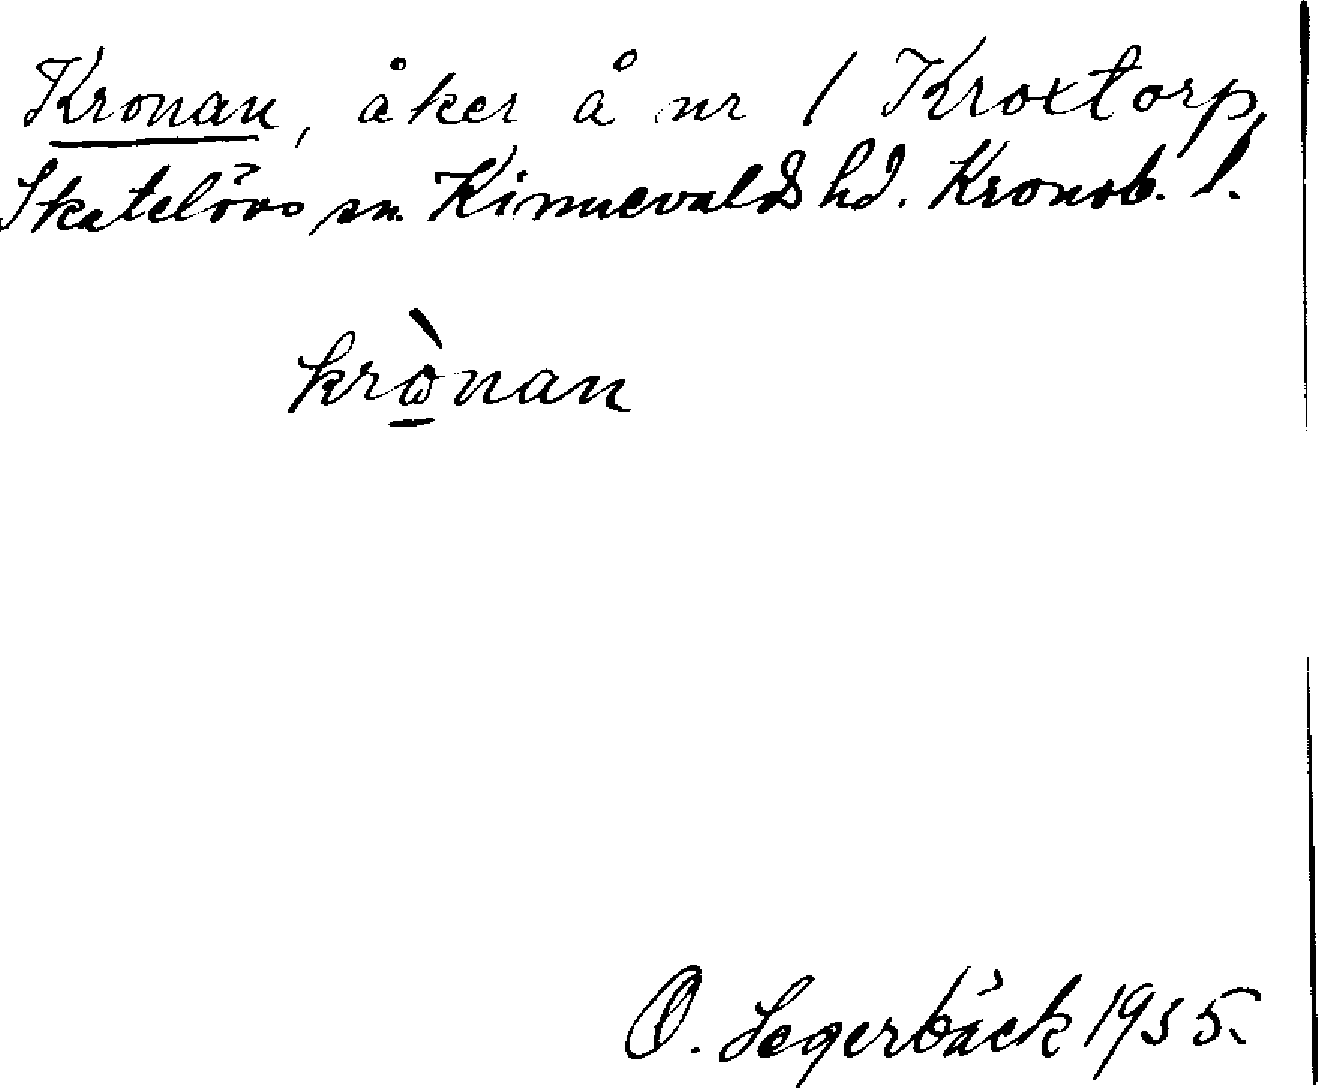 Kronan, åker å nr 1 Kroxtorp,
Skatelövs sn. Kinnevalds hd. Kronob. l.
krò̠nan
O. Segerbäck 1935.